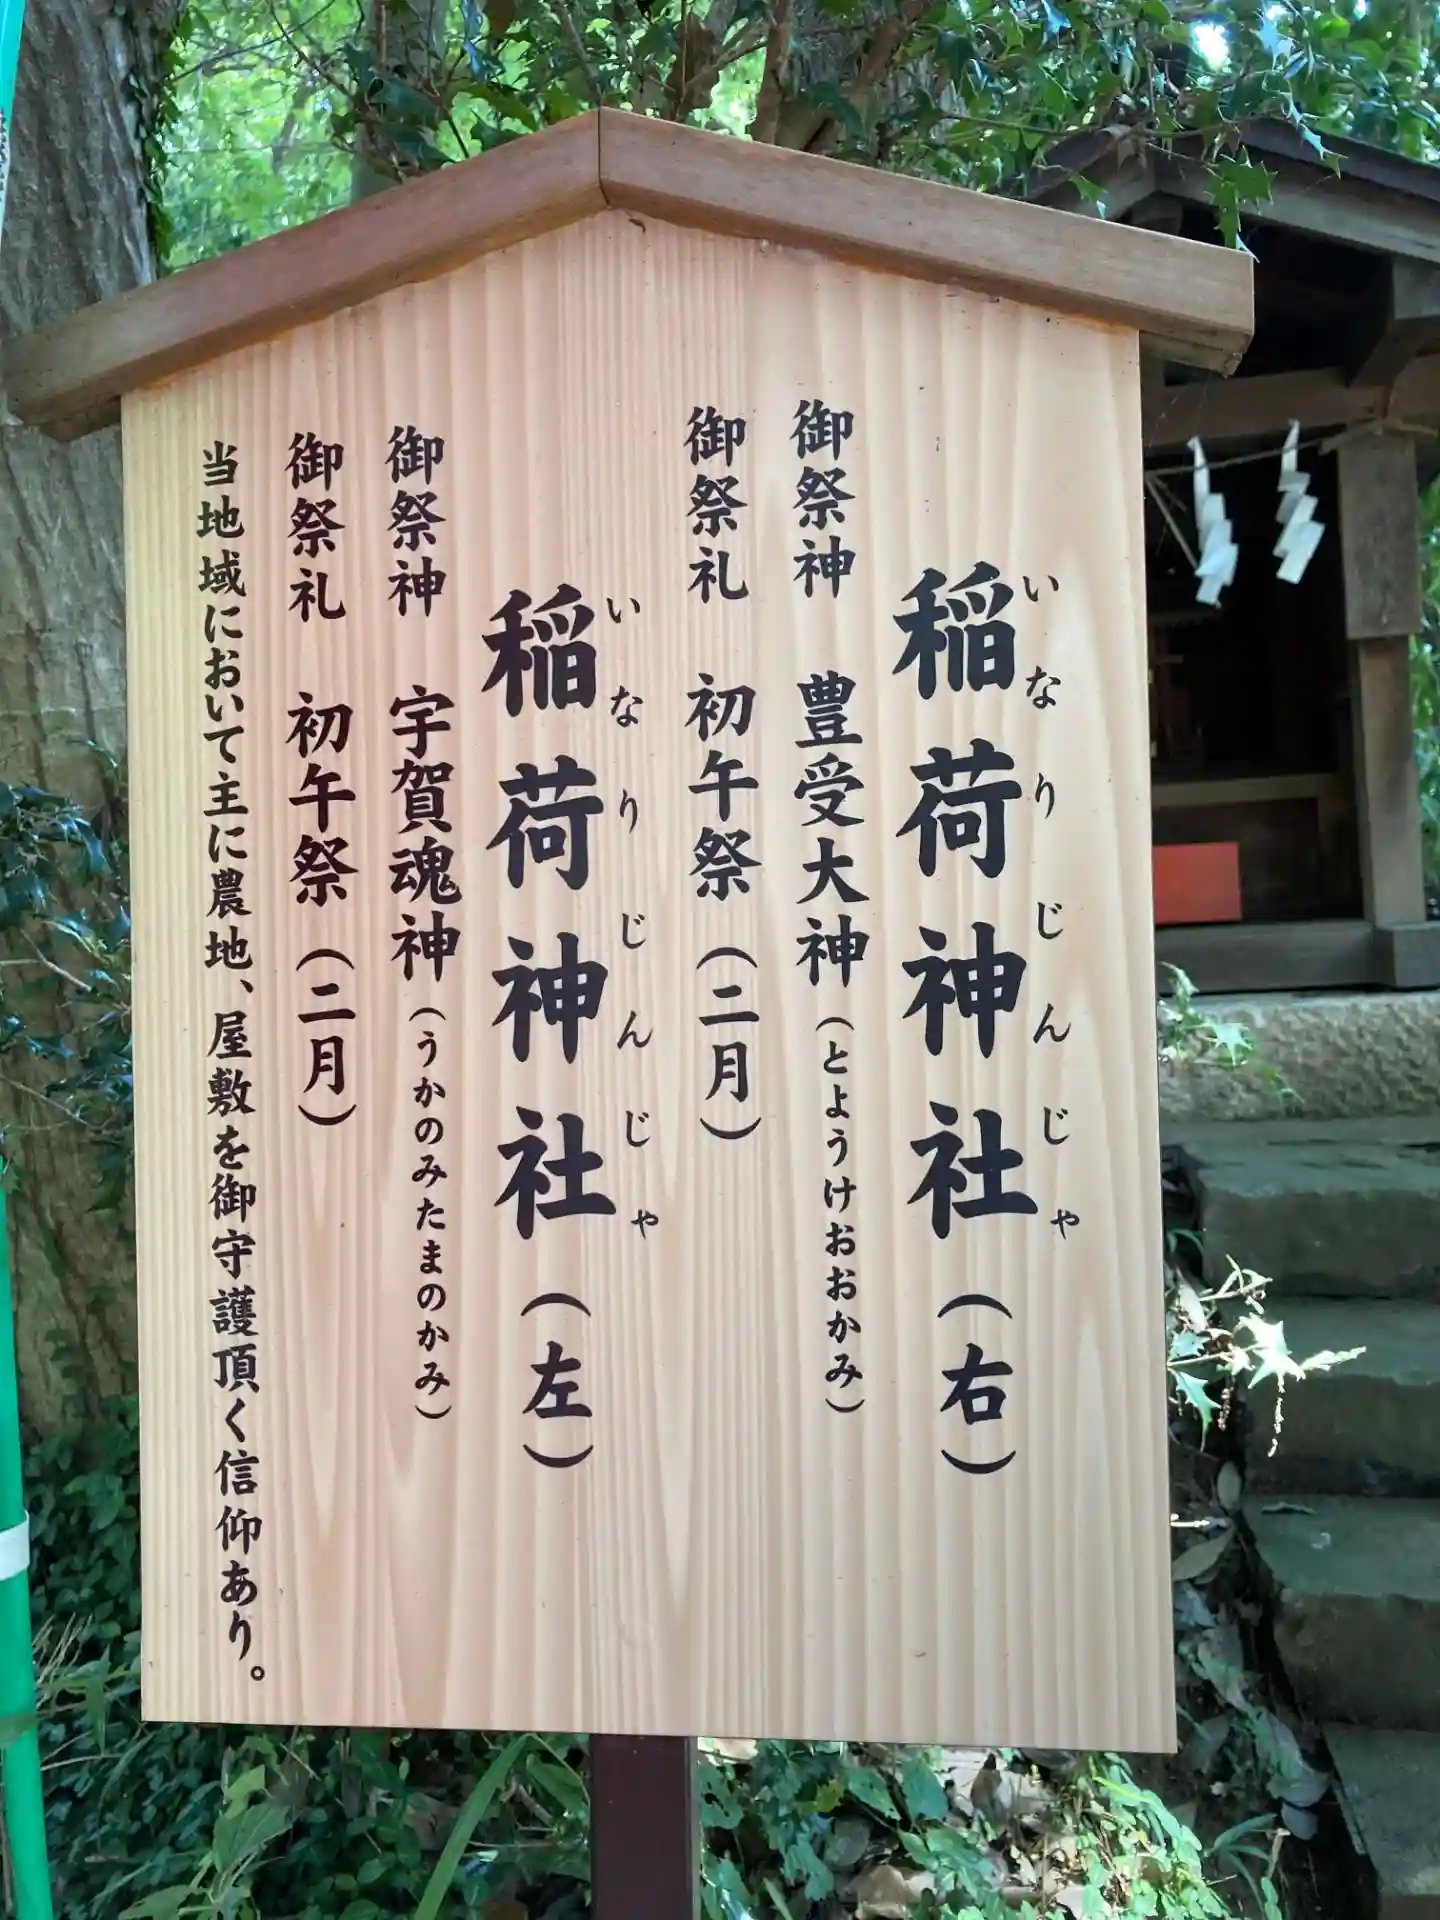 稲荷神社（右）
いなりじんじゃ
御祭神　豊受大神（とようけおおかみ）
御祭礼　初午祭（二月）
稲荷神社（左）
いなりじんじゃ
御祭神　宇賀魂神（うかのみたまのかみ）
御祭礼　初午祭（二月）
当地域において主に農地、屋敷を御守護頂く信仰あり。